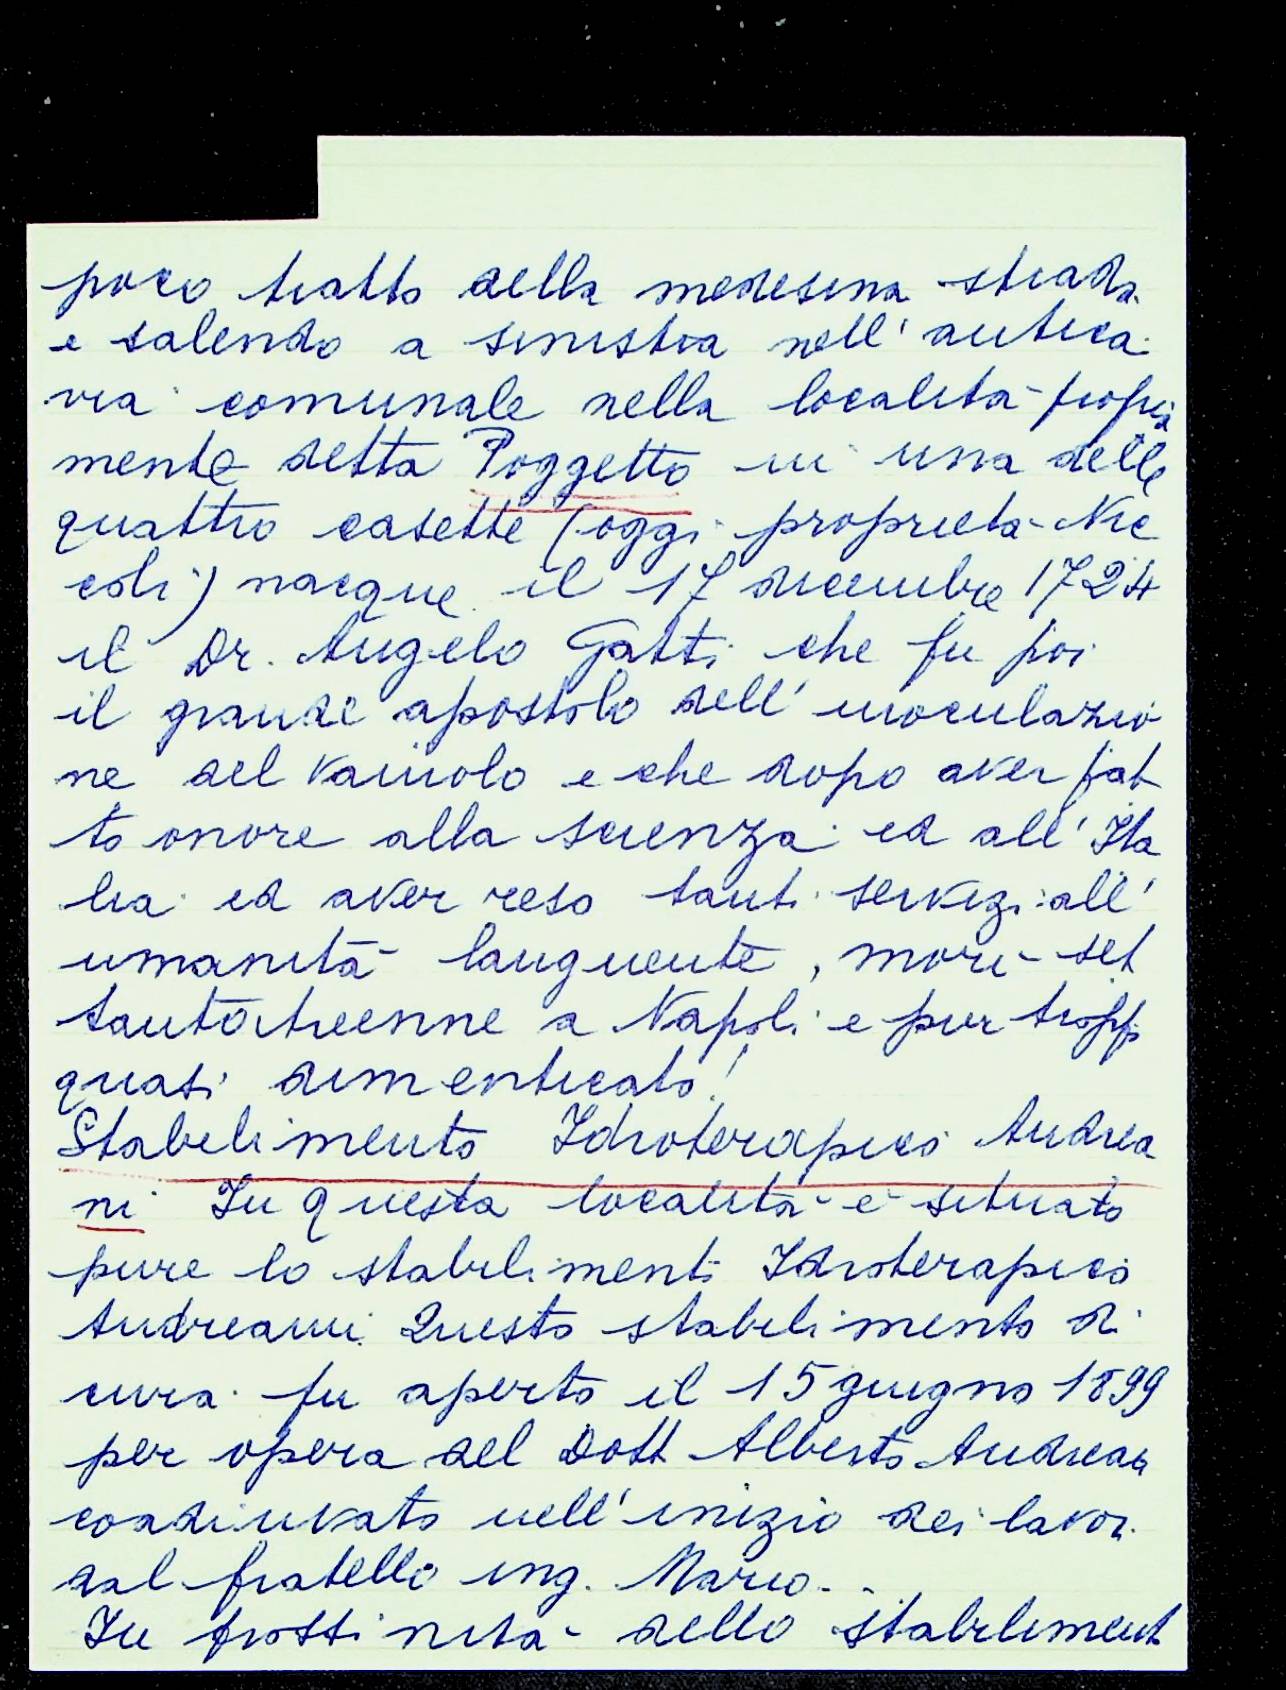 poco tratto della medesima strada
e salendo a sinistra nell' antica
via comunale nella località propria
mente detta Poggetto in una delle
quattro casette (oggi proprietà Nic
coli) nacque il 17 dicembre 1724
il Dr. Angelo Gatti che fu poi
il grande apostolo dell' inoculazio
ne del vaiuolo e che dopo aver fat
to onore alla scienza ed all' Ita
lia ed aver reso tanti servizi all'
umanità languente, morì set
tantatreenne a Napoli e pur troppo
quasi dimenticato!
Stabilimento Idroterapico Andrea
ni In questa località è situato
pure lo stabilimento Idroterapico
Andreani. Questo stabilimento di
cura fu aperto il 15 giugno 1899
per opera del Dott Alberto Andreani
coadiuvato nell' inizio dei lavori
dal fratello ing. Mario.
In prossimità dello stabiliment